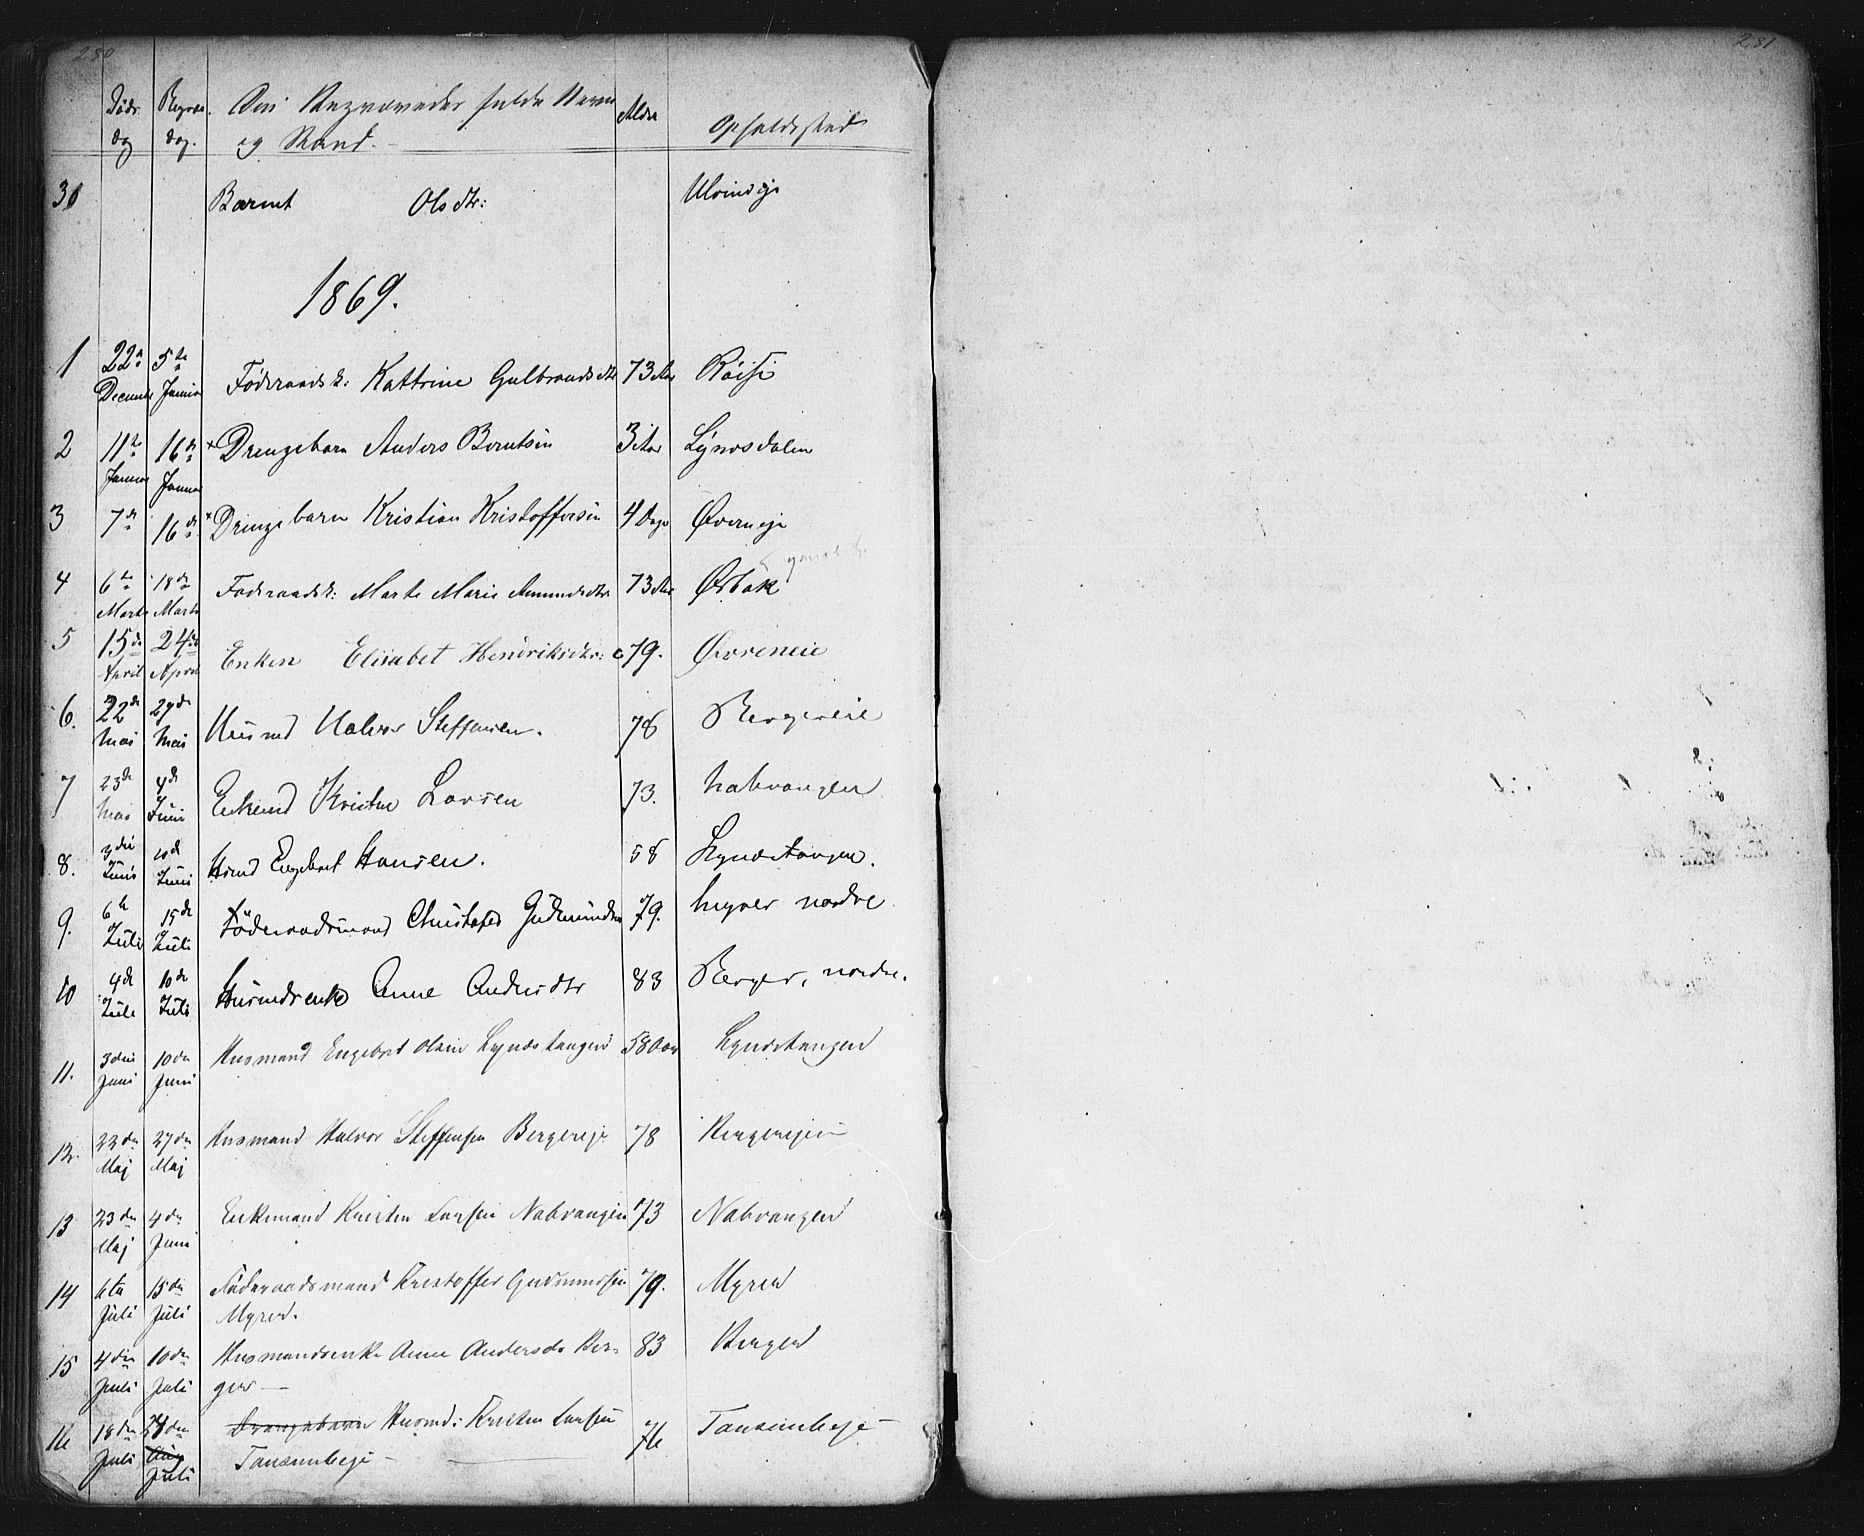 280
281
Døds dag Begrav. dag. Den Begravedes fulde Navn og Stand. Alder Opholdssted
30 Barnet Olsdtr: Ulvineje
1869.
1 22de Decemb 5te Januar Føderaadsk: Kattrine Gulbrandsdtr 73 Aar Røise
2 11te Januar 16de Januar Drengebarn Anders Berntsen 3 Aar
3 7de 16de Drengebarn Kristian Kristoffersen 4 Dage Øverneje
4 6te Marts 18de Marts Føderaadsk: Marte Marie Amundsdtr 73 Aar
5 15de April 24de April Enken Elisabet Hendriksdtr: 79. Øvreneie
6. 22de Mai 27de Mai Husmd Halvor Steffensen. 78 Bergereie
7 23de Mai 4de Juni Enkemd Kristen Larsen 73. Nabvangen
8. 3die Juni 10d Juni Husmd Engebret Hansen. 58 Lyndstangen.
9. 6te Juli 15de Juli Føderaadsmand Christofer Gudmundsen 79. Myrer nordre
10 4de Juli 10de Juli Husmdsenke Anne Andersdtr 83 Berger, nordre.
11. 3die Juni 10de Juni Husmand Engebret Olsen Lyndstangen 58 Aar Lyndstangen
12. 22de Maj 27de Maj Husmand Halvor Steffensen Bergereje 78 Bergerejen
13 23de Maj 4de Juni Enkemand Kristen Larsen Nabvangen 73 Nabvangen
14 6te Juli 15de Juli Føderaadsmand Kristoffer Gudmundsen 79. Myren
Myren.
15 4de Juli 10de Juli Husmandsenke Anne Andersdr Ber- 83 Bergen
ger —
16 18de Juli 24den Aug Juli Drengebarn Husmd: Kristen Larsen 76 Tansembeje —
Tansembeje —